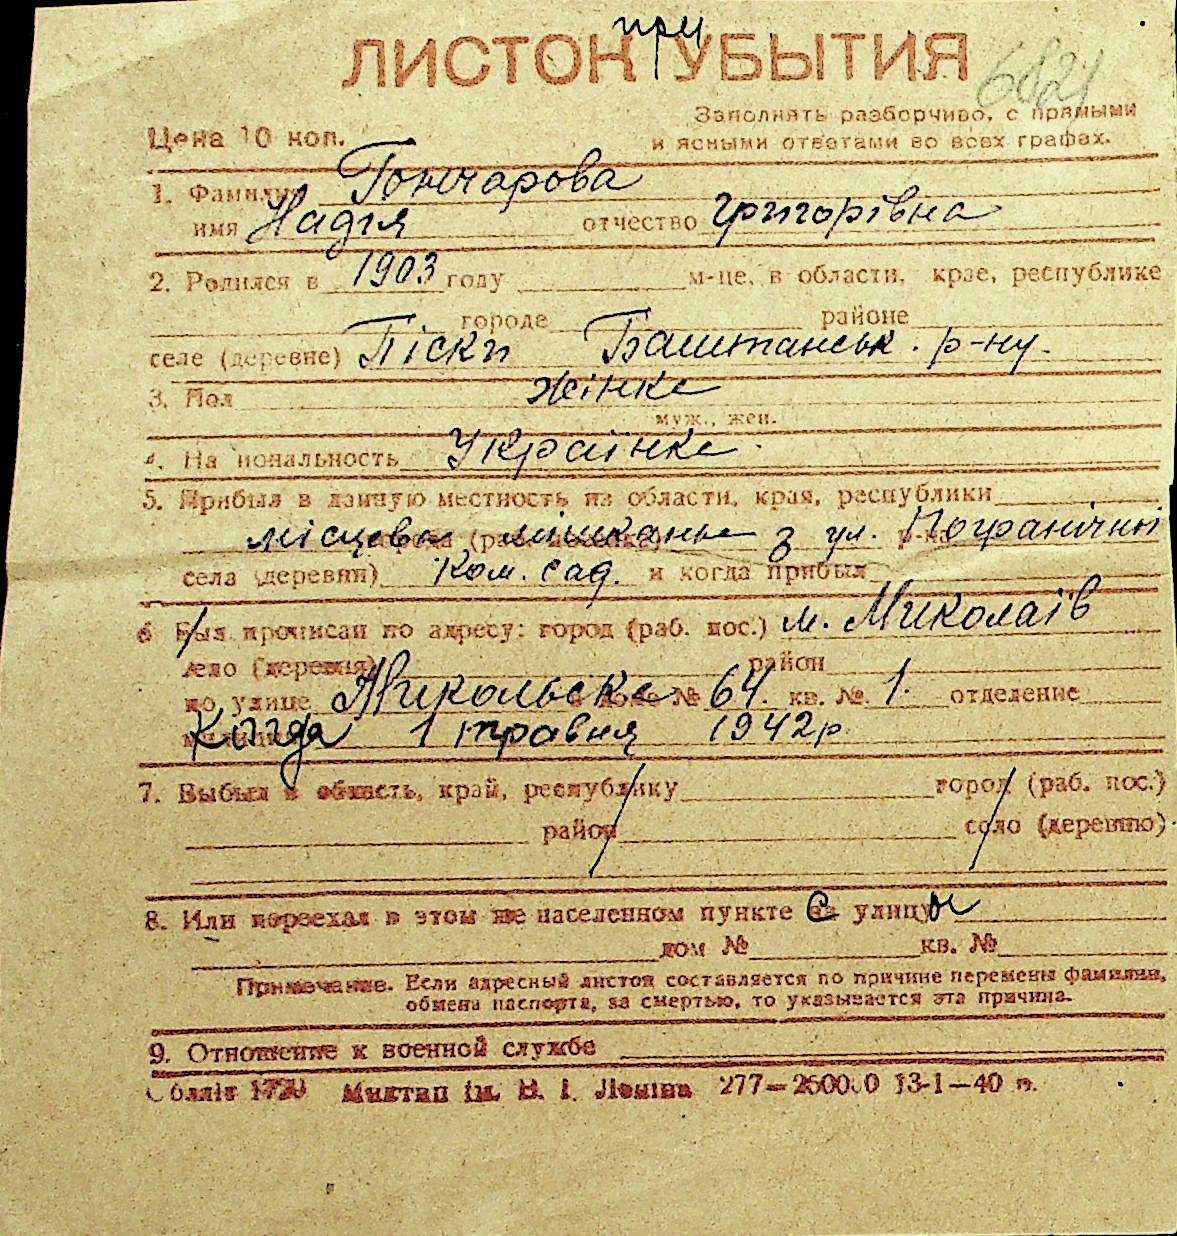 при
ЛИСТОК УБЫТИЯ
6821
Цена 10 коп.
Заполнять разборчиво, с прямыми
и ясными ответами во всех графах.
1. Фамилия Гончарова
имя Надія отчество Григорівна
2. Родился в 1903 году м-це, в области, крае, республике
городе районе
селе (деревне) Піски Баштанськ. р-ну.
3. Пол жінка
муж., жен.
4. Национальность Українка
5. Прибыл в данную местность из области, края, республики
місцева мешканка з ул. Пограничной
села (деревни) Ком. сад. и когда прибыл
6 Был прописан по адресу: город (раб. пос.) м. Миколаїв
село (деревня) район
по улице Микольська в доме № 64. кв. № 1. отделение
Когда 1 травня 1942р
7. Выбыл в область, край, республику город (раб. пос.)
район село (деревню)
8. Или переехал в этом же населенном пункте с улицы
дом № кв. №
Примечание. Если адресный листок составляется по причине перемены фамилии,
обмена паспорта, за смертью, то указывается эта причина.
9. Отношение к военной службе
Облліт Миктип ім. В. І. Леніна 277—250000 13-1—40 р.